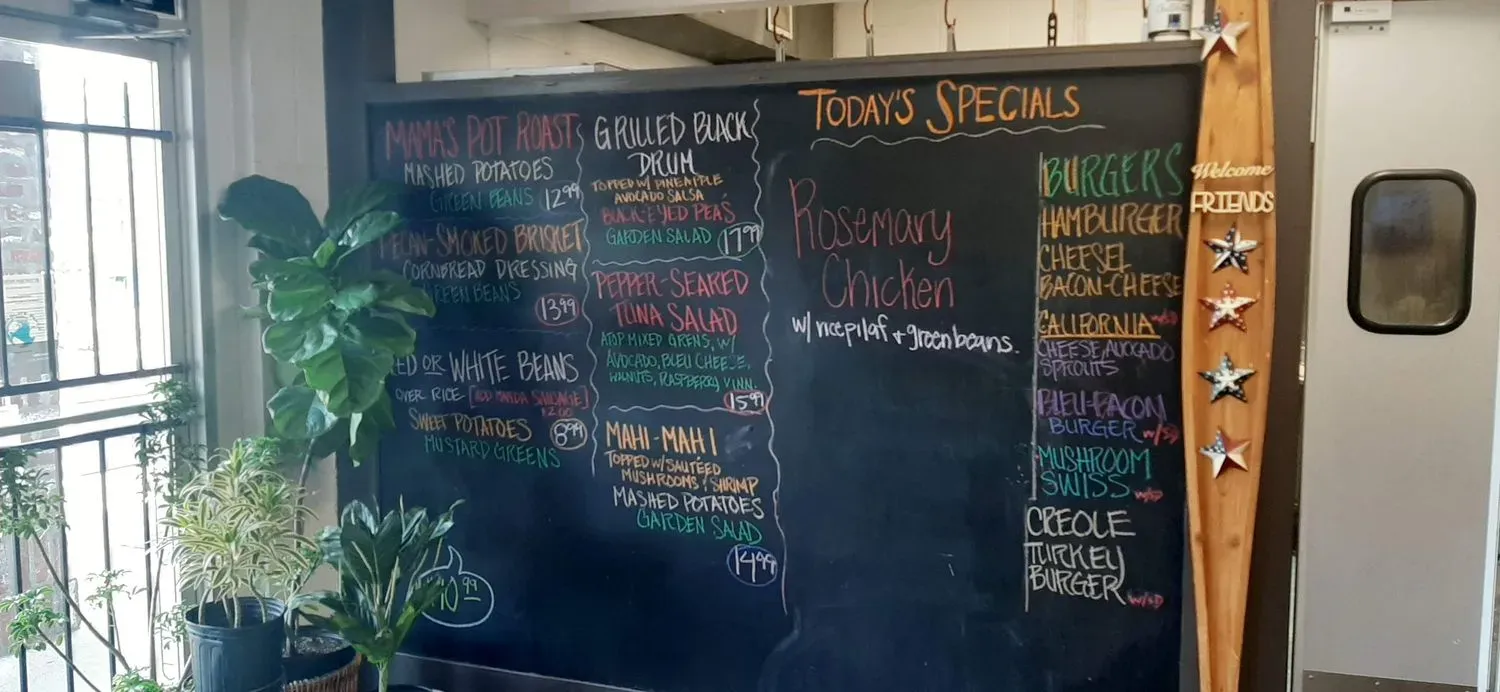 MAMA'S POT ROAST
MASHED POTATOES
GREEN BEANS 12.99
PECAN-SMOKED BRISKET
CORNBREAD DRESSING
GREEN BEANS
13.99
RED OR WHITE BEANS
OVER RICE [ADD SAUSAGE]
$2.00
SWEET POTATOES 8.99
MUSTARD GREENS
10.99
GRILLED BLACK
DRUM
TOPPED W/ PINEAPPLE
AVOCADO SALSA
BLACK-EYED PEAS
GARDEN SALAD 17.99
PEPPER-SEARED
TUNA SALAD
ATOP MIXED GRENS, W/
AVOCADO, BLEU CHEESE,
WALNUTS, RASPBERRY VINN.
15.99
MAHI-MAHI
TOPPED W/SAUTÉED
MUSHROOMS & SHRIMP
MASHED POTATOES
GARDEN SALAD
14.99
TODAY'S SPECIALS
Rosemary
Chicken
w/ rice pilaf + green beans.
BURGERS
HAMBURGER
CHEESE
BACON-CHEESE
CALIFORNIA w/SD
CHEESE, AVOCADO
SPROUTS
BLEU-BACON
BURGER w/SD
MUSHROOM
SWISS w/SD
CREOLE
TURKEY
BURGER w/SD
Welcome
FRIENDS